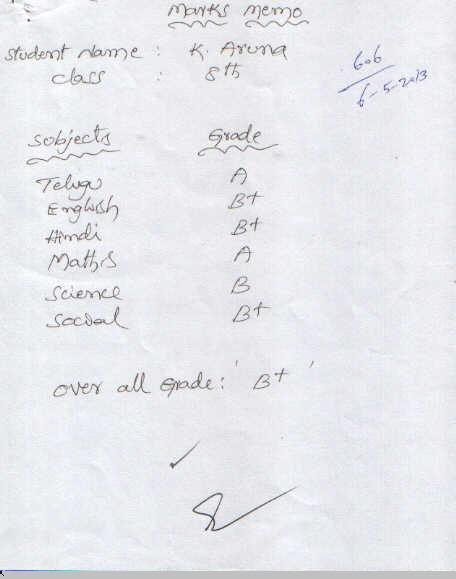 Marks Memo
Student Name : K. Aruna
Class : 8th
606
6-5-2013
Subjects Grade
Telugu A
English B+
Hindi B+
Maths A
Science B
Social B+
Over all Grade : 'B+'